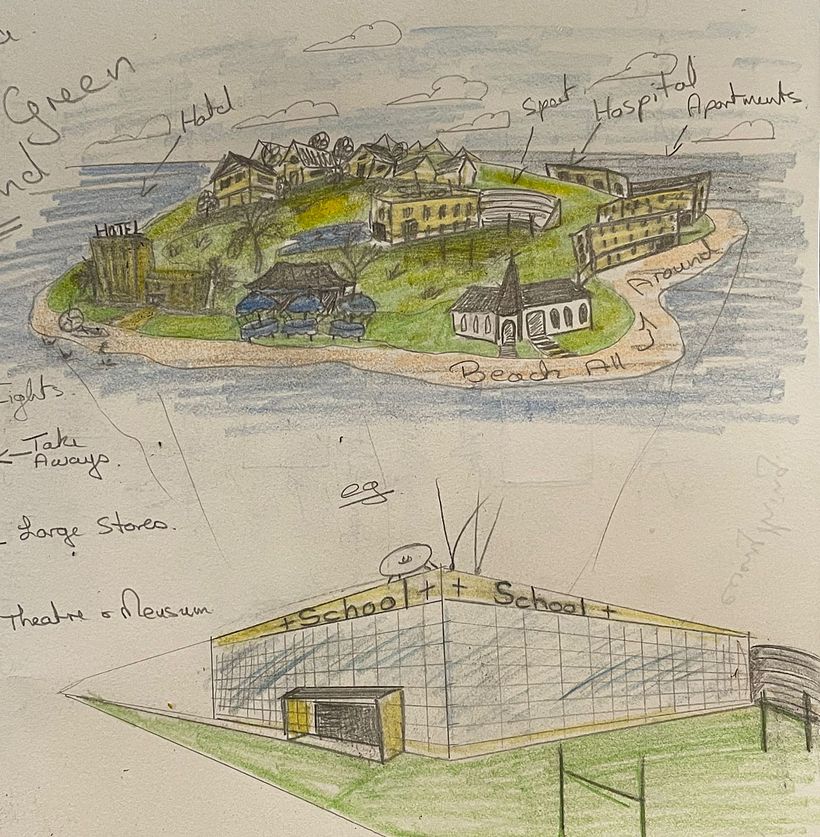 Green
Hotel
Sport
Hospital
Apartments.
HOTEL
Beach All Around
Lights.
Take
Aways.
eg.
Large Stores.
Theatre & Meusum
+School+ + School +